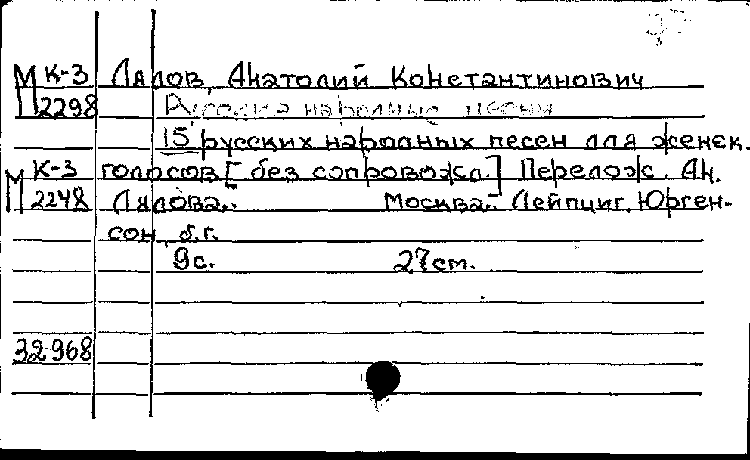 М К-3 Лядов, Анатолий Константинович
2298 Русския народныя песни
15 русских народных песен для женск.
М К-3 голосов [без сопровожд.] Перелож. Ан.
2248 Лядова. Москва. Лейпциг. Юрген-
сон, б.г.
9с. 27см.
32968